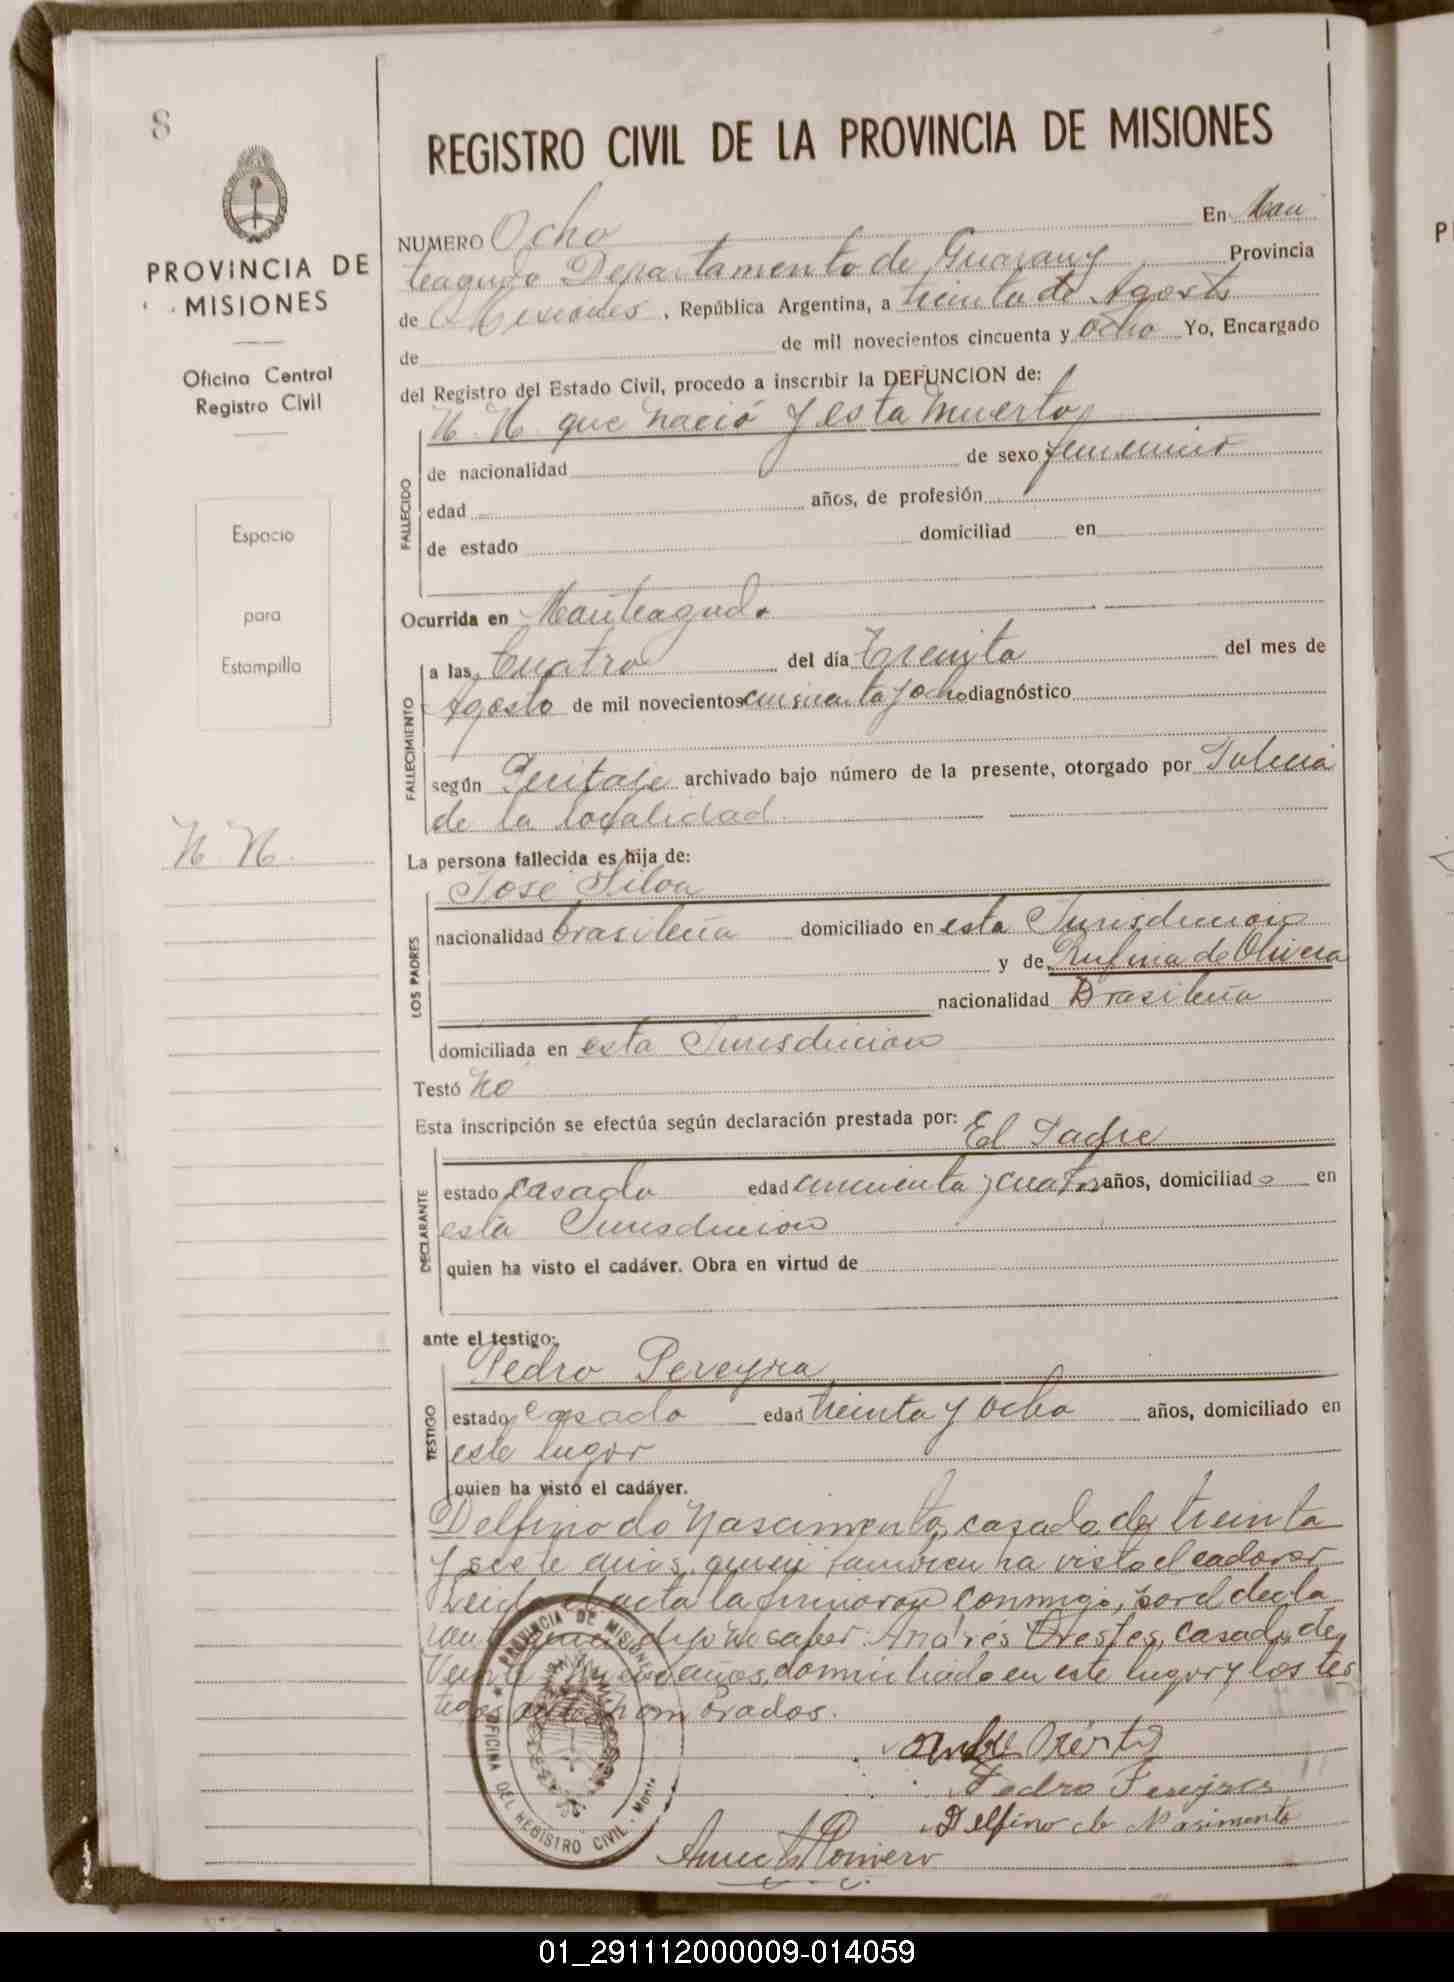 8
PROVINCIA DE
MISIONES
Oficina Central
Registro Civil
Espacio
para
Estampilla
N. N.
REGISTRO CIVIL DE LA PROVINCIA DE MISIONES
NUMERO Ocho En Mon
teagudo Departamento de Guarany Provincia
de Misiones, República Argentina, a treinta de Agosto
de de mil novecientos cincuenta y ocho Yo, Encargado
del Registro del Estado Civil, procedo a inscribir la DEFUNCION de:
N. N. que nació y esta muerto
FALLECIDO
de nacionalidad de sexo femenino
edad años, de profesión
de estado domiciliad en
Ocurrida en Monteagudo
FALLECIMIENTO
a las Cuatro del día Treinta del mes de
Agosto de mil novecientos cincuenta y ocho diagnóstico
según Peritaje archivado bajo número de la presente, otorgado por Policia
de la localidad.
La persona fallecida es hija de:
LOS PADRES
José Silva
nacionalidad brasileña domiciliado en esta Jurisdiccion
y de Rufina de Olivera
nacionalidad Brasileña
domiciliada en esta Jurisdiccion
Testó No
Esta inscripción se efectúa según declaración prestada por: El Padre
DECLARANTE
estado casado edad cincuenta y cuatro años, domiciliado en
esta Jurisdiccion
quien ha visto el cadáver. Obra en virtud de
ante el testigo:
TESTIGO
Pedro Pereyra
estado casado edad treinta y ocho años, domiciliado en
este lugar
quien ha visto el cadáver.
Delfino do Nascimento, casado de treinta
y siete años, quien tambien ha visto el cadaver
Leida el acta la firmaron conmigo, por el decla
rante quien dijo no saber Andrés Orestes, casado de
Veinte años, domiciliado en este lugar y los tes
tigos nombrados.
Pedro Pereyra
Delfino do Nasimento
Romero
PROVINCIA DE MISIONES
OFICINA DEL REGISTRO CIVIL - Monte
01_291112000009-014059